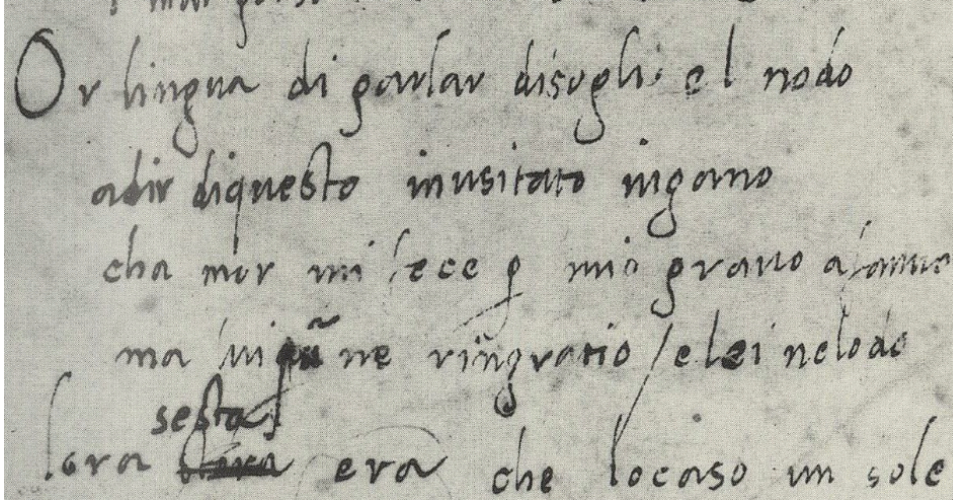 Or lingua di parlar disogli el nodo
adir diquesto inusitato ingano
cha mor mi fece p mio gravo afanno
ma lui ne ringratio e lei nelodo
sesta
lora era che locaso un sole